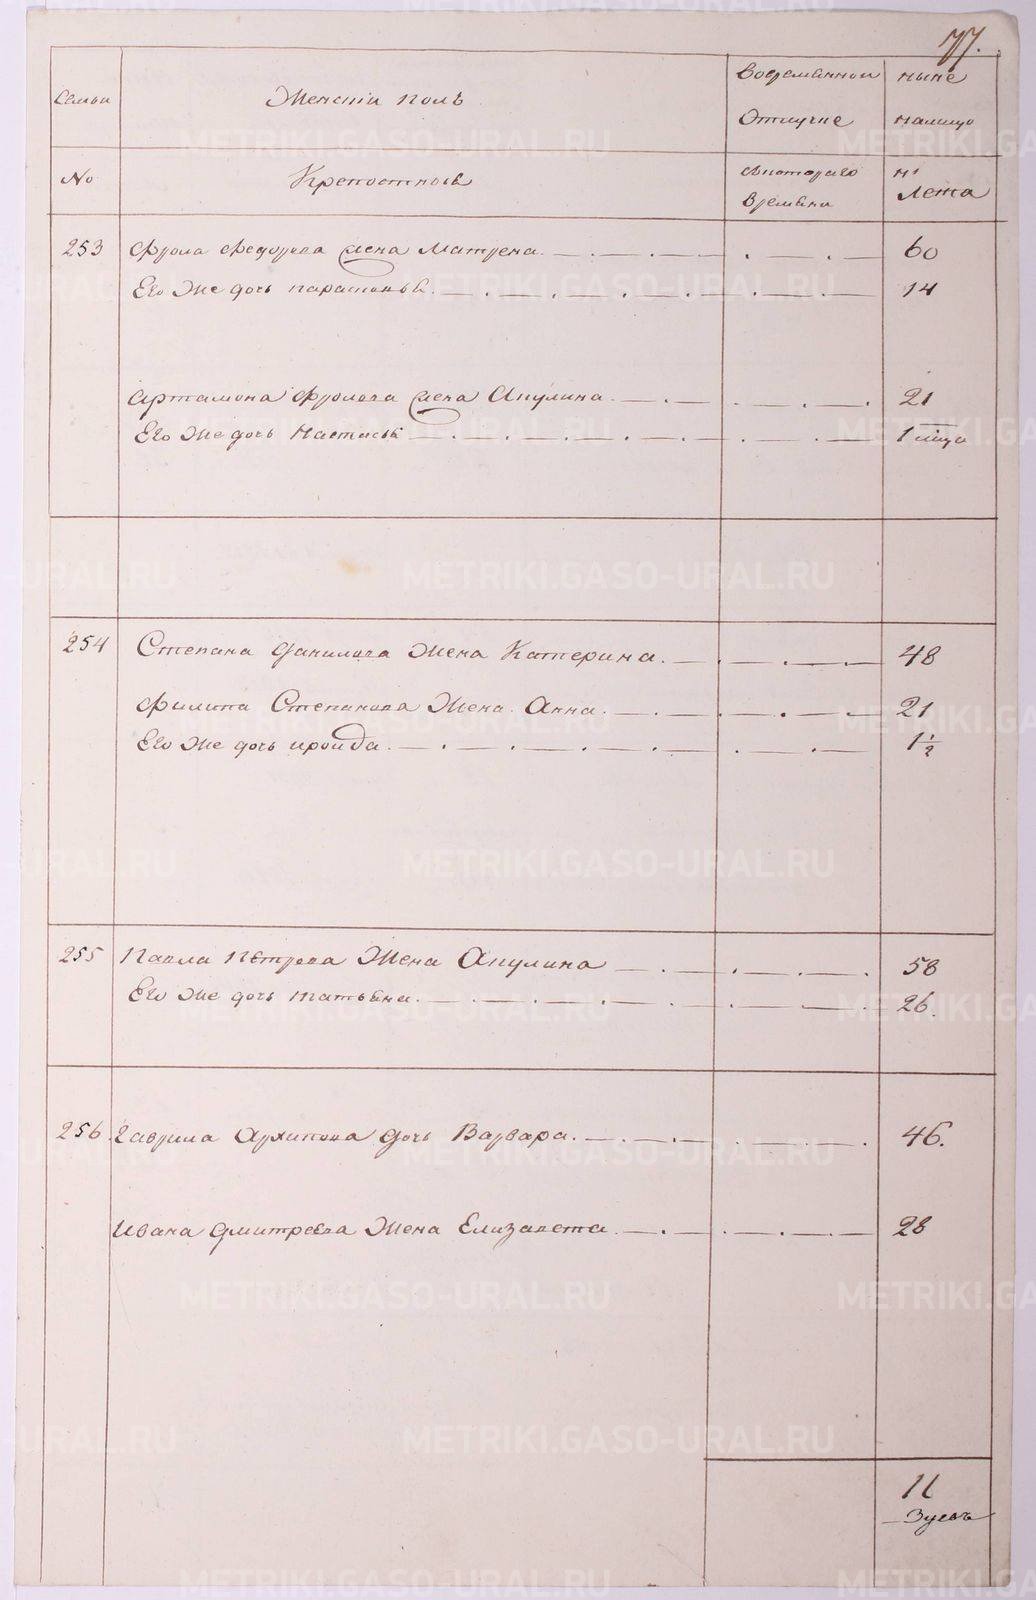 77.
Семьи Женскiй полъ Вовременной отлучке ныне налицо
No Крепостные скотораго времени Лета
253 Фрола Федорова жена Матрена 60
Его же дочь парасковья 14
Артамона Фролова жена Акулина 21
Его же дочь Настасья 1
254 Степана Данилова жена Катерина 48
Филипа Степанова жена Анна 21
Его же дочь ироида 1 1/2
255 Павла Петрова жена Акулина 58
Его же дочь татьяна 26.
256. Гаврила Архипова дочь Варвара 46.
Ивана Дмитреева жена Елизавета 28
11
Зуевъ
METRIKI.GASO-URAL.RU